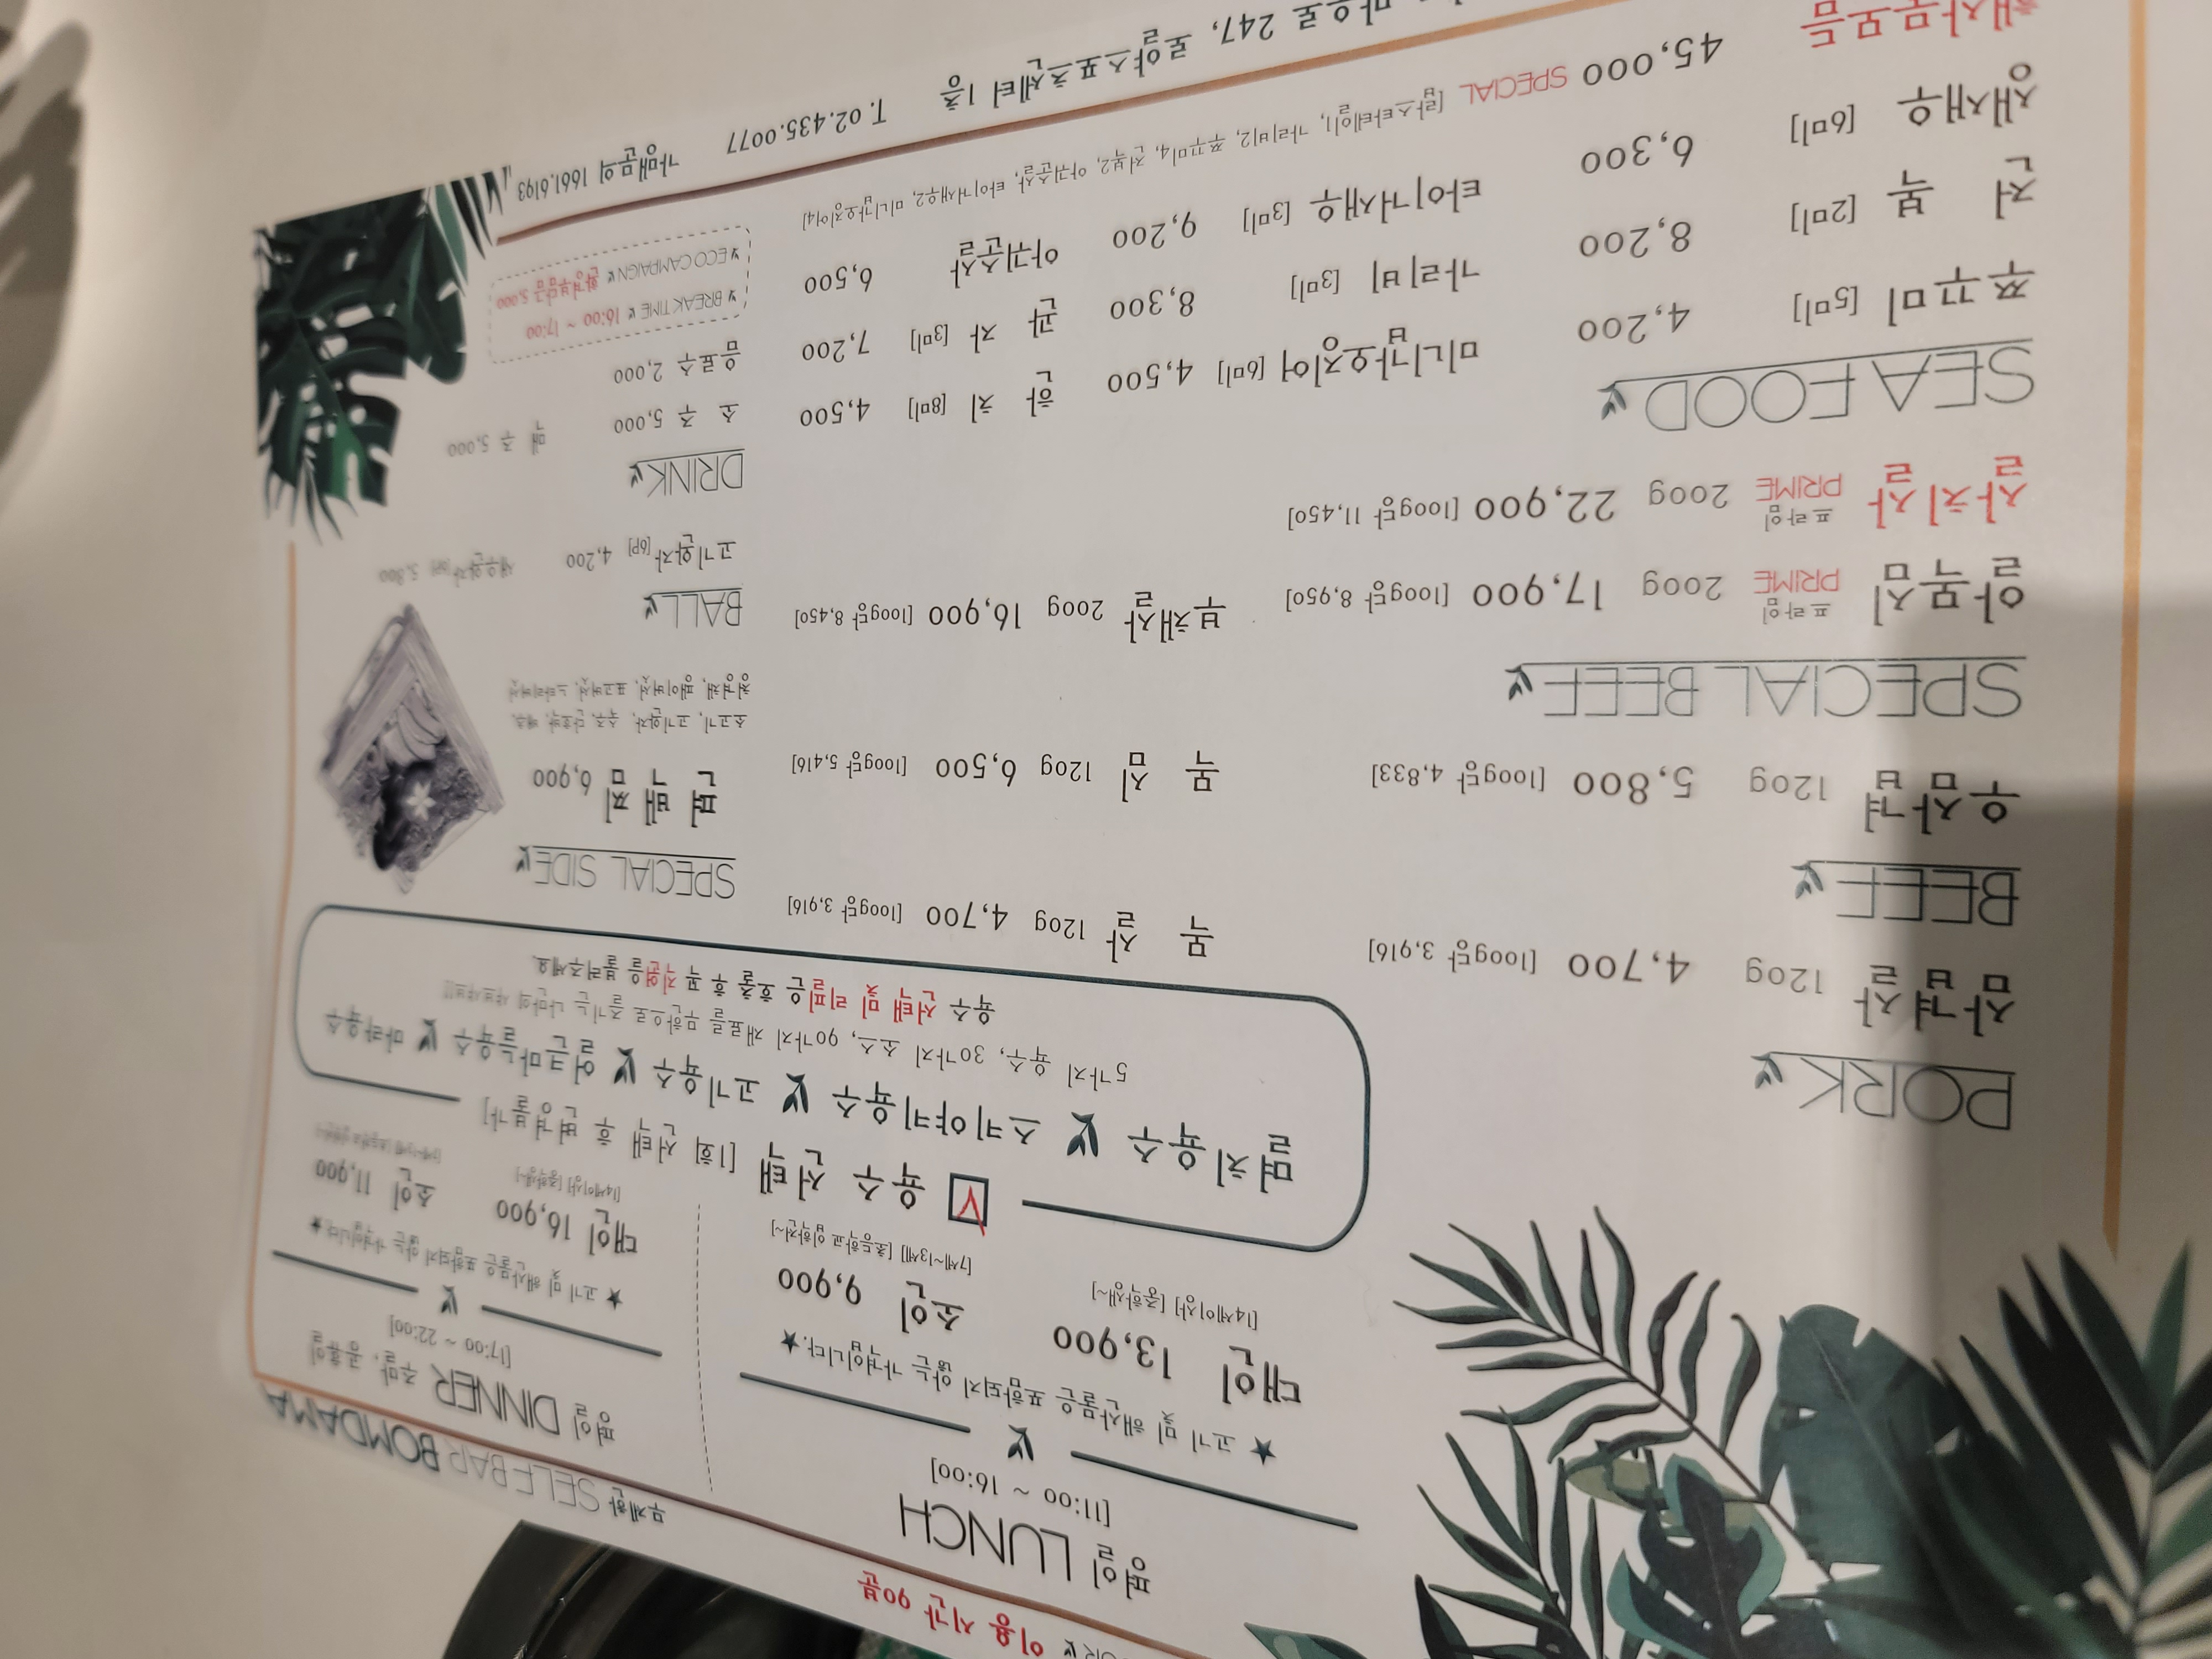 이용 시간 90분
무제한 SELF BAR BOMDAMA
평일 LUNCH
[11:00 ~ 16:00]
★ 고기 및 해산물은 포함되지 않는 가격입니다. ★
대인 13,900
[14세이상] [중학생~]
소인 9,900
[7세~13세] [초등학교 입학전~]
평일 DINNER 주말, 공휴일
[17:00 ~ 22:00]
★ 고기 및 해산물은 포함되지 않는 가격입니다. ★
대인 16,900
[14세이상] [중학생~]
소인 11,900
육수 선택 [1회 선택 후 변경불가]
멸치육수 스키야키육수 고기육수 얼큰마늘육수 마라육수
5가지 육수, 30가지 소스, 90가지 재료를 무한으로 즐기는 나만의 샤브샤브!!
육수 선택 및 리필은 호출 후 꼭 직원을 불러주세요.
PORK
삼겹살 120g 4,700 [100g당 3,916]
목 살 120g 4,700 [100g당 3,916]
BEEF
우삼겹 120g 5,800 [100g당 4,833]
목 심 120g 6,500 [100g당 5,416]
SPECIAL BEEF
알목심 프라임 PRIME 200g 17,900 [100g당 8,950]
부채살 200g 16,900 [100g당 8,450]
살치살 프라임 PRIME 200g 22,900 [100g당 11,450]
SEA FOOD
쭈꾸미 [5미] 4,200
미니갑오징어 [6미] 4,500
한 치 [8미] 4,500
전 복 [2미] 8,200
가리비 [3미] 8,300
관 자 [3미] 7,200
생새우 [6미] 6,300
타이거새우 [3미] 9,200
아귀순살 6,500
해산물모듬 45,000 SPECIAL [랍스타테일1, 가리비2, 쭈꾸미4, 전복2, 아귀순살, 타이거새우2, 미니갑오징어4]
SPECIAL SIDE
편 백 찜 6,900
소고기, 고기완자, 숙주, 단호박, 배추,
청경채, 팽이버섯, 표고버섯, 느타리버섯
BALL
고기완자 [6P] 4,200
새우완자 [6P] 5,800
DRINK
소 주 5,000
맥 주 5,000
음료수 2,000
BREAK TIME 16:00 ~ 17:00
ECO CAMPAIGN 환경부담금 5,000
247, 로얄스포츠센터 1층
T. 02.435.0077
가맹문의 1661.6193